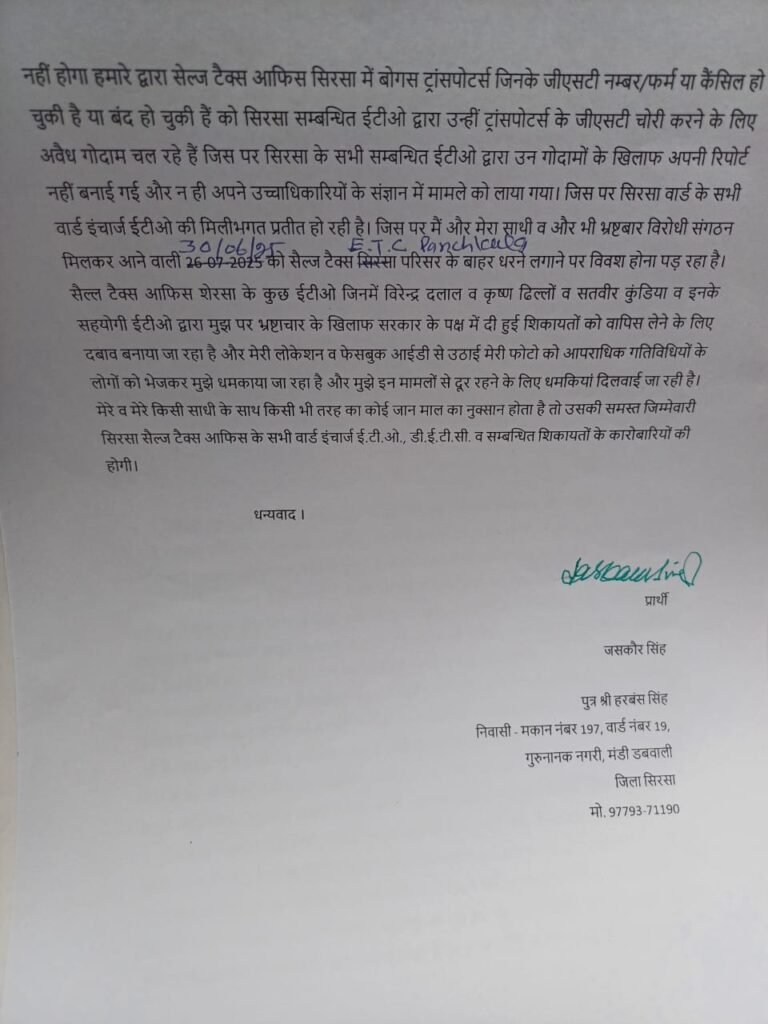 नहीं होगा हमारे द्वारा सेल्ज टैक्स आफिस सिरसा में बोगस ट्रांसपोटर्स जिनके जीएसटी नम्बर/फर्म या कैंसिल हो
चुकी है या बंद हो चुकी हैं को सिरसा सम्बन्धित ईटीओ द्वारा उन्हीं ट्रांसपोटर्स के जीएसटी चोरी करने के लिए
अवैध गोदाम चल रहे हैं जिस पर सिरसा के सभी सम्बन्धित ईटीओ द्वारा उन गोदामों के खिलाफ अपनी रिपोर्ट
नहीं बनाई गई और न ही अपने उच्चाधिकारियों के संज्ञान में मामले को लाया गया। जिस पर सिरसा वार्ड के सभी
वार्ड इंचार्ज ईटीओ की मिलीभगत प्रतीत हो रही है। जिस पर मैं और मेरा साथी व और भी भ्रष्टबार विरोधी संगठन
30/06/25 E.T.C Panchkula
मिलकर आने वाली 26-07-2025 को सैल्ज टैक्स सिरसा परिसर के बाहर धरने लगाने पर विवश होना पड़ रहा है।
सैल्ल टैक्स आफिस शेरसा के कुछ ईटीओ जिनमें विरेन्द्र दलाल व कृष्ण ढिल्लों व सतवीर कुंडिया व इनके
सहयोगी ईटीओ द्वारा मुझ पर भ्रष्टाचार के खिलाफ सरकार के पक्ष में दी हुई शिकायतों को वापिस लेने के लिए
दबाव बनाया जा रहा है और मेरी लोकेशन व फेसबुक आईडी से उठाई मेरी फोटो को आपराधिक गतिविधियों के
लोगों को भेजकर मुझे धमकाया जा रहा है और मुझे इन मामलों से दूर रहने के लिए धमकियां दिलवाई जा रही है।
मेरे व मेरे किसी साधी के साथ किसी भी तरह का कोई जान माल का नुक्सान होता है तो उसकी समस्त जिम्मेवारी
सिरसा सैल्ज टैक्स आफिस के सभी वार्ड इंचार्ज ई.टी.ओ., डी.ई.टी.सी. व सम्बन्धित शिकायतों के कारोबारियों की
होगी।
धन्यवाद ।
प्रार्थी
जसकौर सिंह
पुत्र श्री हरबंस सिंह
निवासी - मकान नंबर 197, वार्ड नंबर 19,
गुरुनानक नगरी, मंडी डबवाली
जिला सिरसा
मो. 97793-71190